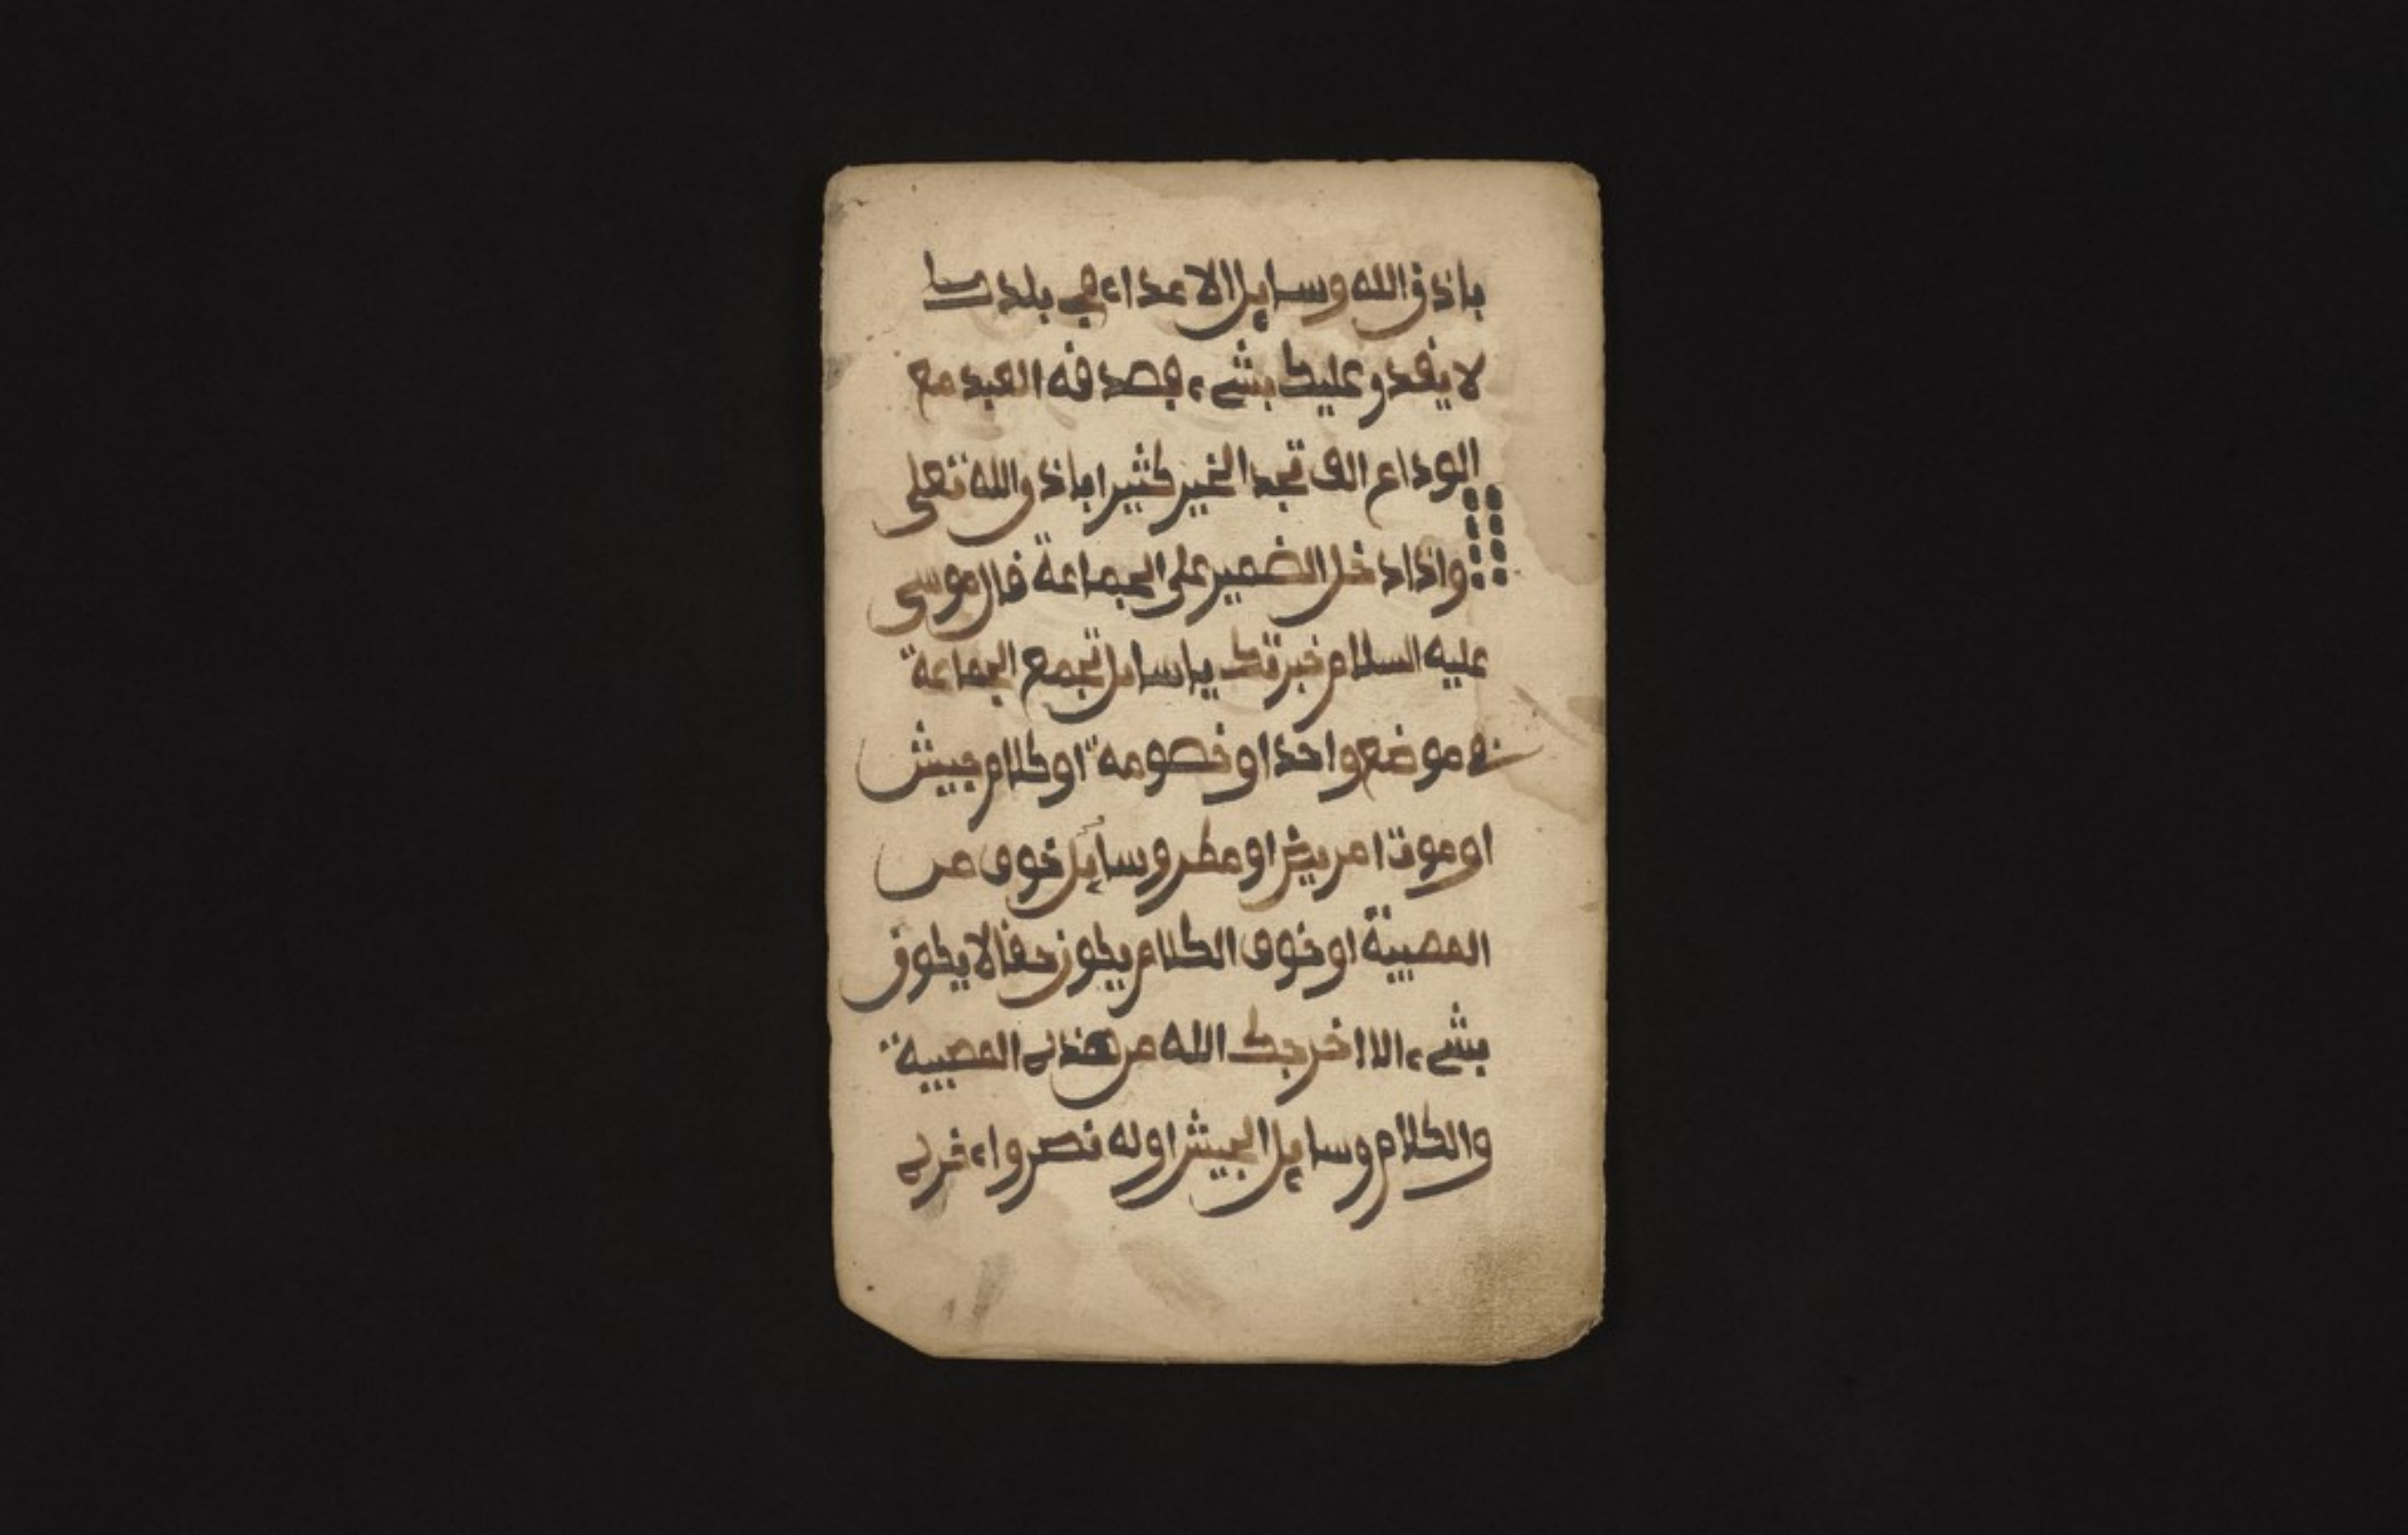 باذن الله وسايل الاعداء في بلدك
لا يقدر عليك بشيء فصدقه العبد مع
الوداع الف تجد الخير كثيرا باذن الله تعلى
واذا دخل الضمير على الجماعة قال موسى
عليه السلام خبرتك يا سايل تجمع الجماعة
في موضع واحد او خصومة او كلام جيش
او موت امريض او مطر وسايل خوف من
المصيبة او خوف الكلام يكون حقا لا يكون
بشيء الا اخرجك الله من هذه المصيبة
والكلام وسايل الجيش اوله نصر واخره